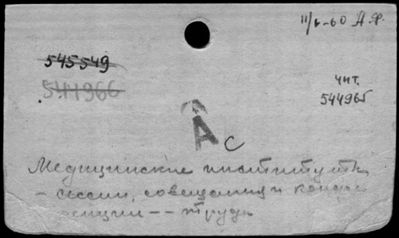 11/6-60 А.Ф.
545549
544966
чит.
544965
А с
Медицинские институты
- сессии, совещания и конфе
ренции -- труды